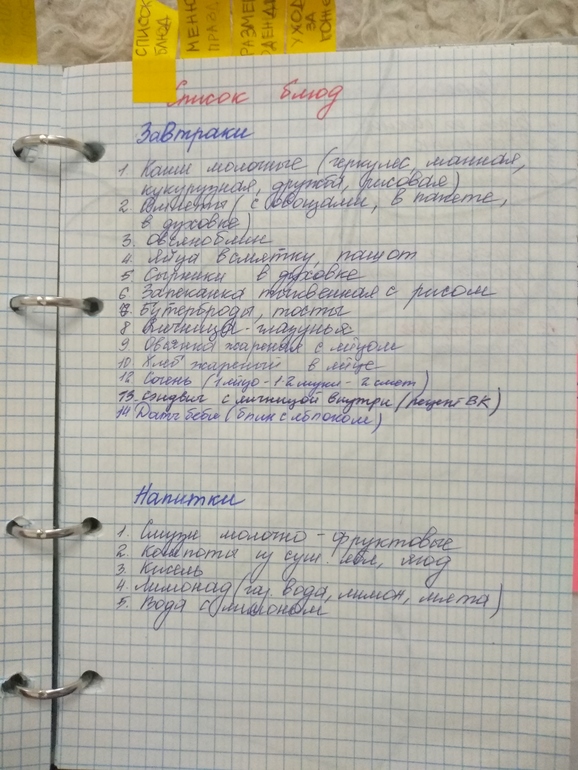 СПИСОК БЛЮД
МЕНЮ
ПРАЗД
РАЗМЕ
ОДЕЖД
УХОД ЗА
КОЖЕ
Список блюд
Завтраки
1 Каши молочные (геркулес, манная,
кукурузная, дружба, рисовая)
2. Омлеты (с овощами, в пакете,
в духовке)
3. Овсяноблин
4. Яйца всмятку, пашот
5 Сырники в духовке
6 Запеканка с рисом
7. Бутерброды, тосты
8 Яичница-глазунья
9 Овсянка жареная с яйцом
10 Хлеб жареный в яйце
12 Сочень (1 яйцо - 1-2 муки - 2 смет)
13. Сэндвич с яичницой внутри (рецепт ВК)
14 Датч беби (блин с яблоком)
Напитки
1. Смузи молочно-фруктовые
2. Компоты из суш. ябл, ягод
3. Кисель
4. Лимонад (газ. вода, лимон, мята)
5. Вода с лимоном